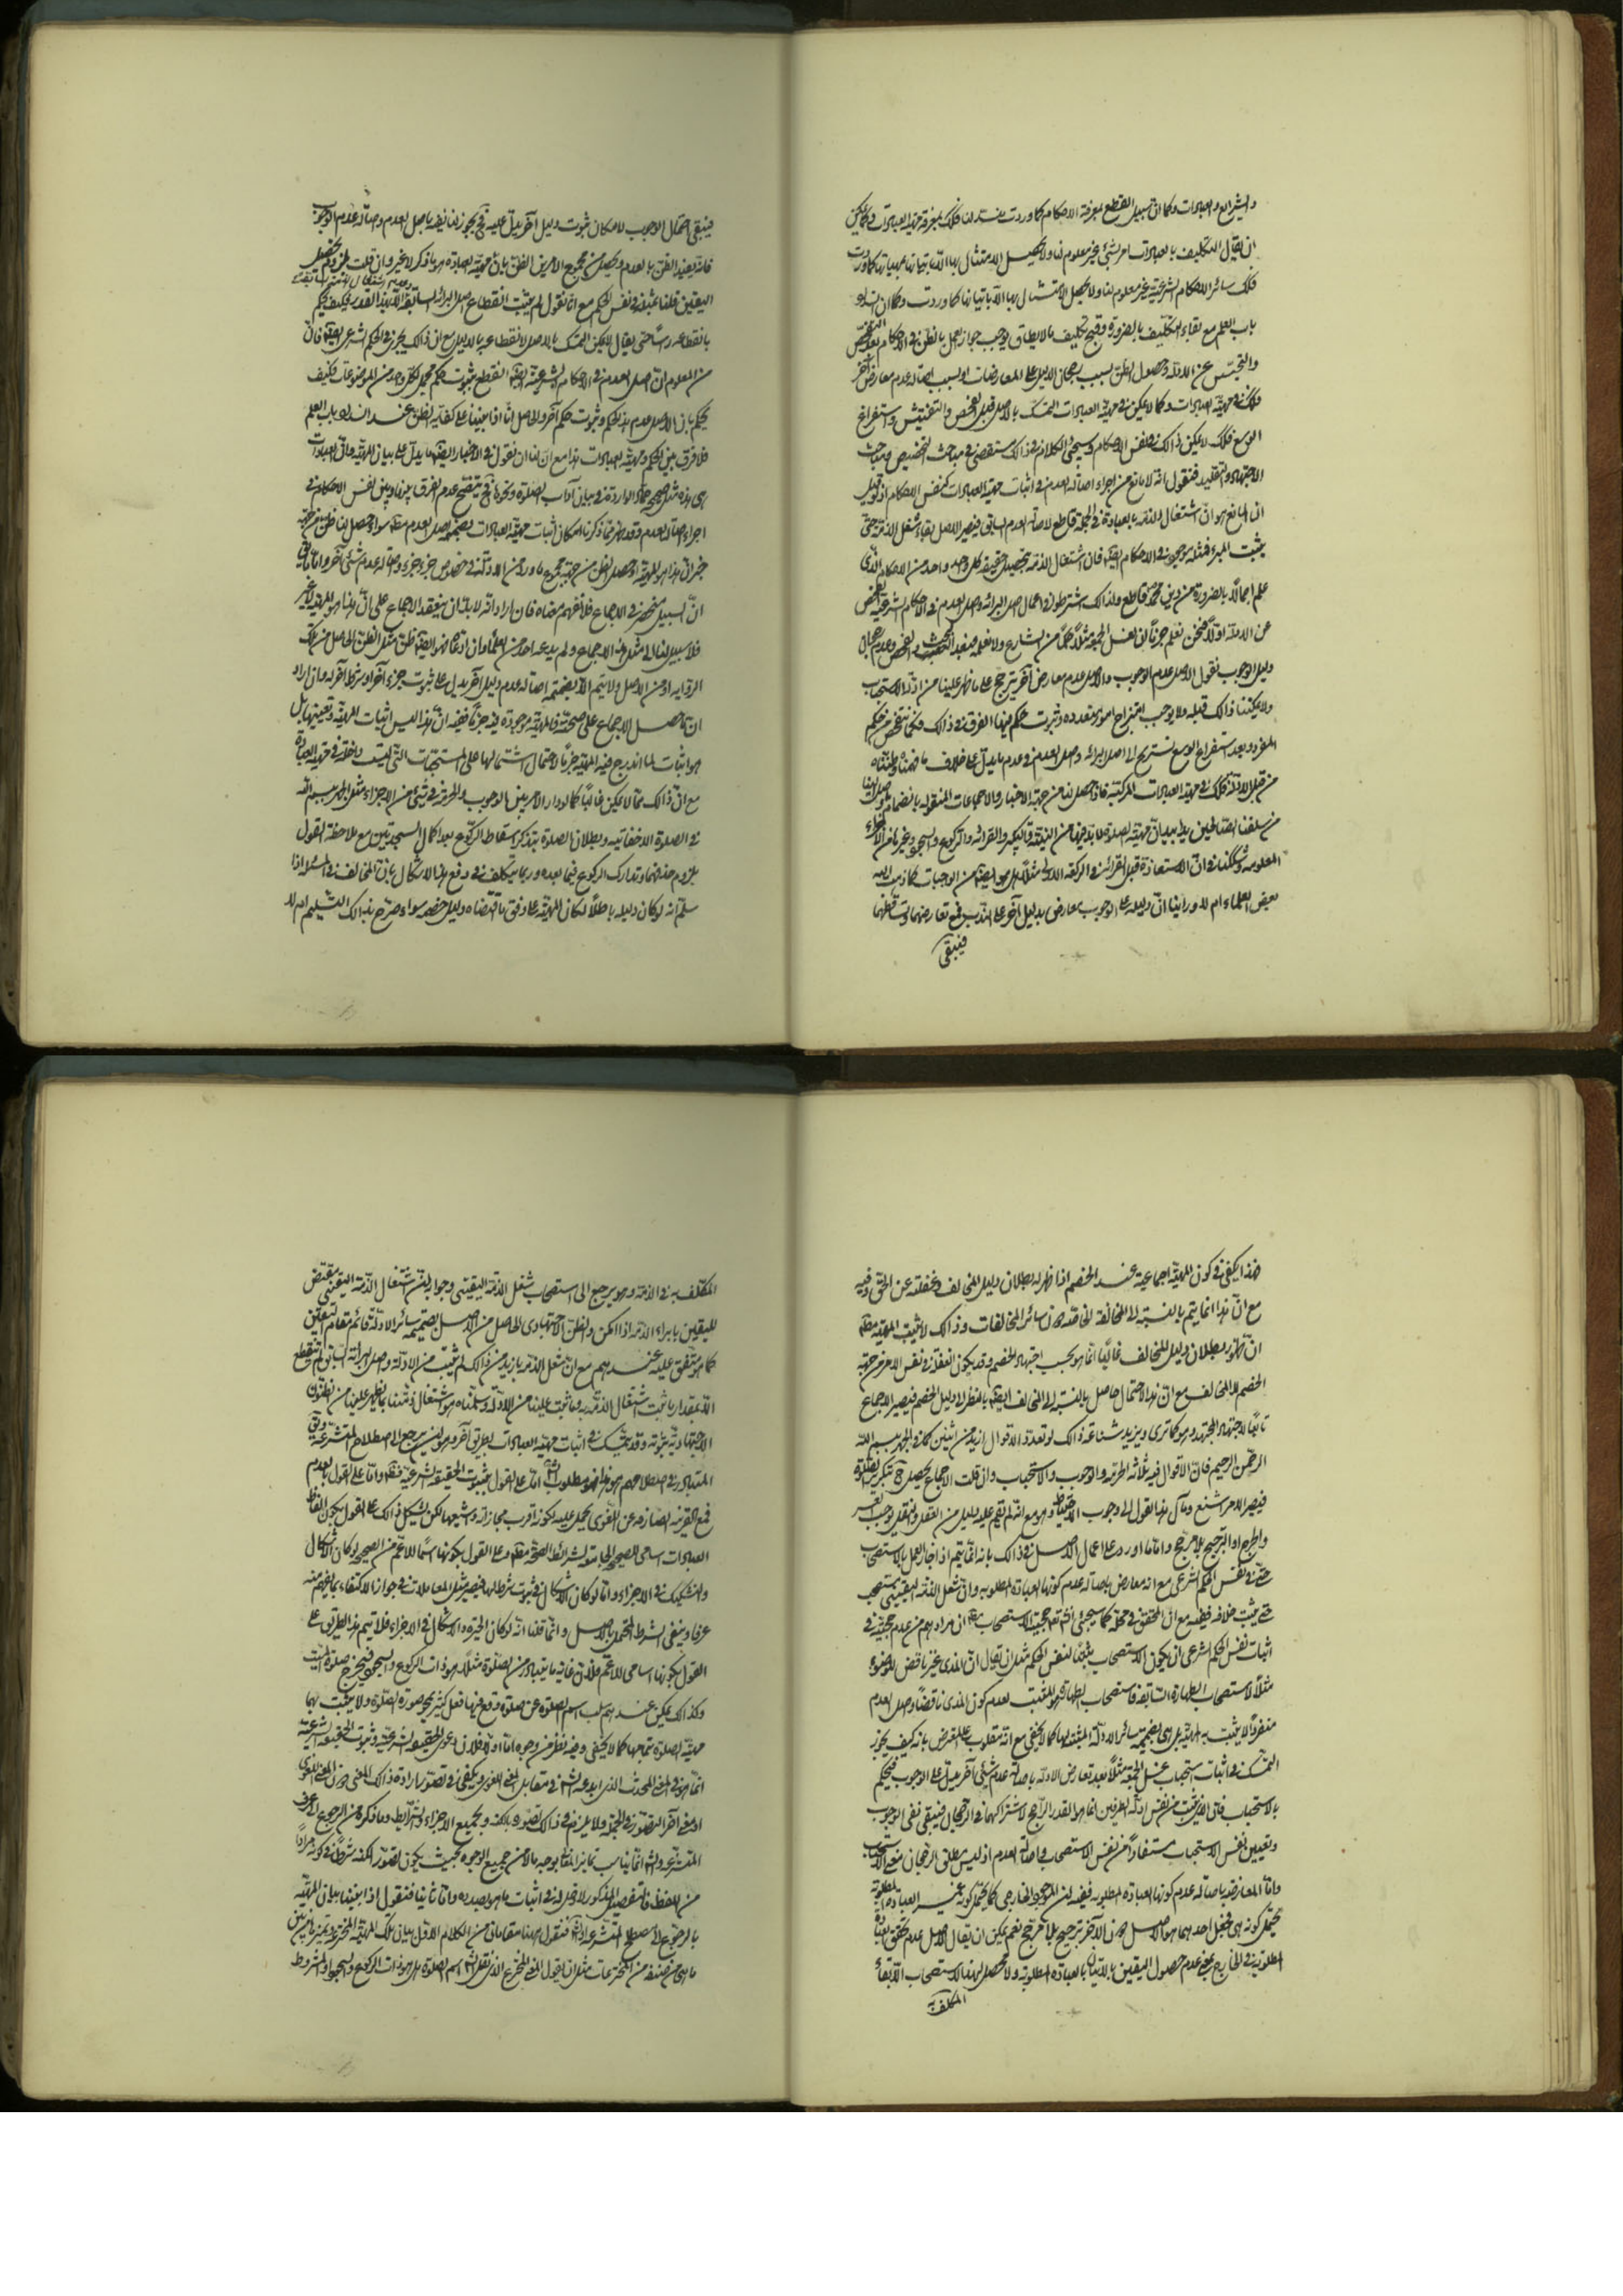 والشرايع والعبادات وكما ان سبيل القطع بمعرفة الاحكام كما وردت منسد لنا فكذلك بمعرفة مهية العبادات وكما يمكن
ان يقال التكليف بالعبادات امر بشئ غير معلوم لنا ولا يحصل الامتثال بها الا باتيانها بمهياتها كما وردت
فكذلك سائر الاحكام الشرعية غير معلوم لنا ولا يحصل الامتثال بها الا باتيانها كما وردت وكما ان انسداد
باب العلم مع بقاء التكليف بالضرورة وقبح تكليف ما لا يطاق يوجب جواز العمل بالظن في الاحكام بعد التفحص
والتجسس عن الادلة وحصول الظن بسبب رجحان الدليل على المعارضات او بسبب اصالة عدم معارض آخر
فكذلك في مهية العبادات وكما لا يمكن في مهية العبادات التمسك بالاصل قبل الفحص والتفتيش واستفراغ
الوسع فكذلك لا يمكن ذالك في نفس الاحكام وسيجئ الكلام في ذالك مستقصى في مباحث التخصيص ومباحث
الاجتهاد والتقليد فنقول انه لا مانع من اجراء اصالة العدم في اثبات مهية العبادات كنفس الاحكام اذ لو قيل
ان المانع هو ان اشتغال الذمة بالعبادة في الجملة قاطع لاصالة العدم السابق فيصير الاصل بقاء شغل الذمة حتى
يثبت المبرئ فمثله موجود في الاحكام ايضا فان اشتغال الذمة بتحصيل حقيقة كل واحد واحد من الاحكام الذي
علم اجمالا بالضرورة من دين محمد ص قاطع ولذالك اشترطوا في اعمال اصل البرائة واصل العدم في الاحكام الشرعية الفحص
عن الادلة اولا فنحن نعلم جزما ان لغسل الجمعة مثلا حكما من الشارع ولا نعلمه فبعد البحث والفحص وعدم رجحان
دليل الوجوب نقول الاصل عدم الوجوب والاصل عدم معارض آخر يترجح على ما ظهر علينا من ادلة الاستحباب
ولا يمكننا ذالك قبله ولا يوجب امتزاج امور متعدده وثبوت حكم فيها الفرق في ذالك فكما نتفحص عن حكم
المفرد وبعد استفراغ الوسع نستريح الى اصل البرائة واصل العدم في عدم ما يدل على خلاف ما فهمناه وظنناه
من قبل الادلة فكذلك في مهية العبادات المركبة فاذا حصل لنا من جهة الاخبار والاجماعات المنقولة بانضمام ما وصل الينا
من سلفنا الصالحين يدا بيد ان مهية الصلوة لا بد فيها من النية والتكبير والقرائة والركوع والسجود وغيرها من الاجزاء
المعلومة وشككنا في ان الاستعاذة قبل القرائة في الركعة الاولى مثلا هل هو ايضا من الواجبات كما ذهب اليه
بعض العلماء ام لا ورأينا ان دليله على الوجوب معارض بدليل آخر على الندب فمع تعارضهما وتساقطهما
فيبقى
فيبقى احتمال الوجوب لامكان ثبوت دليل آخر يدل عليه فح يجوز لنا نفيه باصل العدم واصالة عدم الوجوب
فانه يفيد الظن بالعدم ويحصل من مجموع الامرين الظن بان مهية العبادة هو ما ذكر لا غير وان قلت لا يجوز تحصيل
اليقين قلنا بمثله في نفس الحكم مع انا نقول لم يثبت انقطاع اصل البرائة السابقة الا بهذا القدر فكيف يحكم
بانقطاعه رأسا حتى يقال لا يمكن التمسك بالاصل لانقطاعه بالدليل مع ان ذالك يجري في الحكم الشرعي ايضا فان
من المعلوم ان اصل العدم في الاحكام الشرعية ايضا انقطع بثبوت حكم مجمل لكل واحد من الموضوعات فكيف
يحكم بان الاصل عدم هذا الحكم وثبوت حكم آخر والحاصل انا اذا بنينا على كفاية الظن عند انسداد باب العلم
فلا فرق بين الحكم ومهية العبادات هذا مع ان لنا ان نقول في الاخبار ايضا ما يدل على بيان المهية وان العبادات
هي هذه مثل صحيحة حماد الواردة في بيان آداب الصلوة ونحوها فح يتضح عدم الفرق بينها وبين نفس الاحكام في
اجراء اصالة العدم وقد ظهر مما ذكرنا امكان اثبات مهية العبادات بضميمة اصل العدم سواء حصل لنا ظن من جهة
خبر ان هذا هو المهية او حصل الظن من جهة مجموع ما ورد من الادلة في خصوص جزء جزء واصالة عدم شئ آخر واما ما يقال
ان السبيل منحصر في الاجماع فلا نفهم معناه فان اراد انه لا بد ان ينعقد الاجماع على ان هذا هو المهية لا غير
فلا سبيل لنا الى مثل هذا الاجماع ولم يدعه احد من العلماء وان ادعاه فهو ايضا ظن مثل الظن الحاصل من تلك
الرواية او من الاصل ولا يتم الا بضميمة اصالة عدم دليل آخر يدل على ثبوت جزء آخر او شرط آخر له وان اراد
ان ما حصل الاجماع على صحته فالمهية موجودة فيه جزما ففيه ان هذا ليس اثبات المهية وتعيينها بل
هو اثبات لما اندرج فيه المهية جزما لاحتمال اشتمالها على المستحبات التي ليست داخلة في مهية العبادة
مع ان ذالك مما لا يمكن غالبا كما لو دار الامر بين الوجوب والحرمة في شئ من الاجزاء مثل الجهر ببسم الله
في الصلوة الاخفاتية وبطلان الصلوة بتذكر اسقاط الركوع بعد اكمال السجدتين مع ملاحظة القول
بلزوم حذفهما وتدارك الركوع فيما بعده وربما يتكلف في دفع هذا الاشكال بان المخالف في المسئلة اذا
سلم انه لو كان دليله باطلا لكان المهية على وفق ما اقتضاه دليل خصمه سواء صرح بذالك التسليم ام لا
فهذا يكفي في كون المهية اجماعية عند الخصم اذا ظهر له بطلان دليل المخالف وغفلته عن الحق وفيه
مع ان هذا انما يتم بالنسبة الى المخالفة الخاصة دون سائر المخالفات وذالك لا يثبت المهية مطلقا
ان ظهور بطلان دليل المخالف غالبا انما هو بحسب اجتهاد الخصم وقد يكون الغفلة في نفس الامر من جهة
الخصم لا المخالف مع ان هذا الاحتمال حاصل بالنسبة الى المخالف ايضا بالنظر الى دليل الخصم فيصير الاجماع
تابعا لاجتهاد المجتهد وهو كما ترى ويزيد شناعة ذالك لو تعدد الاقوال ازيد من اثنين كما في الجهر ببسم الله
الرحمن الرحيم فان الاقوال فيه ثلاثة الحرمة والوجوب والاستحباب وان قلت الاجماع يحصل ح بتكرير الصلوة
فيصير الامر اشنع ومآل هذا القول الى وجوب الاحتياط وهو مع انه لم يقم عليه دليل من العقل والنقل يوجب العسر
والحرج او الترجيح بلا مرجح واما ما اورد على اعمال الاصل في ذالك بانه انما يتم اذا جاز العمل بالاستصحاب
حتى في نفس الحكم الشرعي مع انه معارض باصالة عدم كونها العبادة المطلوبة وان شغل الذمة اليقيني مستصحب
حتى يثبت خلافه ففيه مع ان المحقق في محله كما سيجئ انشاء الله تع حجية الاستصحاب مطلقا ان مرادهم من عدم حجيته في
اثبات نفس الحكم الشرعي ان يكون الاستصحاب مثبتا لنفس الحكم مثل ان يقال ان المذي غير ناقض للوضوء
مثلا لاستصحاب الطهارة السابقة فاستصحاب الطهارة هو المثبت لعدم كون المذي ناقضا واصل العدم
منفردا لا يثبت به المهية بل هي بضميمة سائر الادلة المثبتة لها كما لا يخفى مع انه مقلوب على المعترض بانه كيف يجوز
التمسك في اثبات استحباب غسل الجمعة مثلا بعد تعارض الادلة باصالة عدم شئ آخر يدل على الوجوب فيحكم
بالاستحباب فان الذي يثبت من نفس ادلة الطرفين انما هو القدر الراجح لاشتراكهما في الرجحان فيبقى نفي الوجوب
وتعيين نفس الاستحباب مستفادا من نفس الاستصحاب واصالة العدم اذ ليس مطلق الرجحان معنى الاستحباب
واما المعارضة باصالة عدم كونها العبادة المطلوبة ففيه ان الموجود الخارجي كما يحتمل كونه غير العبادة المطلوبة
يحتمل كونه هي فجعل احدهما هو الاصل دون الآخر ترجيح بلا مرجح نعم يمكن ان يقال الاصل عدم تحقق العبادة
المطلوبة في الخارج بمعنى عدم حصول اليقين بالاتيان بالعبادة المطلوبة ولا محصل لهذا الاستصحاب الا بقاء
المكلف به
المكلف به في الذمة وهو يرجع الى استصحاب شغل الذمة اليقيني وجوابه ان اشتغال الذمة اليقيني مقتض
لليقين بابراء الذمة اذا امكن والظن الاجتهادي الحاصل من الاصل بضميمة سائر الادلة قائم مقام اليقين
كما هو متفق عليه عندهم مع ان شغل الذمة بازيد من ذالك لم يثبت من الادلة واصل البرائة السابق لم ينقطع
الا بمقدار ما ثبت اشتغال الذمة به وما ثبت علينا من الادلة وسلمناه هو اشتغال ذمتنا بما يظهر علينا من الظنون
الاجتهادية ثبوته وقد يتمسك في اثبات مهية العبادات بطريق آخر وهو ان يرجع الى اصطلاح المتشرعة وان
المتبادر في اصطلاحهم هو هذا فهو مطلوب الشارع اما على القول بثبوت الحقيقة الشرعية فظاهر واما على القول بالعدم
فمع القرينة الصارفة عن اللغوي يحمل عليه لكونه اقرب مجازاته واشيعها لكن يشكل ذالك على القول بكون الفاظ
العبادات اسامي للصحيحة الجامعة لشرائط الصحة مطلقا وعلى القول بكونها اسما للاعم من الصحيحة لو كان الاشكال
والتشكيك في الاجزاء واما لو كان الاشكال في ثبوت شرط لها فيصير مثل المعاملات في جواز الاكتفاء بما يفهم منه
عرفا وينفى الشرط المحتمل بالاصل وانما قلنا انه لو كان الحيرة والاشكال في الاجزاء فلا يتم هذا الطريق على
القول بكونها اسامي للاعم فلان غاية ما يتبادر من الصلوة مثلا هو ذات الركوع والسجود فيخرج صلوة الميت
وكذالك يمكن عندهم سلب اسم الصلوة عن صلوة وقع فيها فعل كثير يمحو صورة الصلوة ولا يثبت بها
مهية الصلوة بتمامها كما لا يخفى وفيه نظر من وجوه اما اولا فلان دعوى الحقيقة الشرعية وثبوت الحقيقة الشرعية
انما هو في المعنى المحدث الذي ابدعه الشارع في مقابل المعنى اللغوي ويكفي في تصور ارادة ذالك المعنى دون المعنى اللغوي
او معنى آخر التصور في الجملة ولا يلزم في ذالك تصوره بالكنه وبجميع الاجزاء والشرايط وما ذكره من الرجوع الى عرف
المتشرعة والشارع انما يناسب تمايز المعنى بوجه ما لا من جميع الوجوه بحيث يكون تصور الكنه شرطا في كونه مرادا
من اللفظ فالتفصيل المذكور لا دخل له في اثبات ما هو بصدده واما ثانيا فنقول اذا بنينا بيان المهية
بالرجوع الى مصطلح المتشرعة او الشارع فنقول ههنا مقامان من الكلام الاول بيان تلك المهية المخترعة وتميزها من بين
ما هي من صنفه من المخترعات مثل ان يقول المعنى المخترع الذي نقل الشارع اسم الصلوة هل هو ذات الركوع والسجود او المشروط